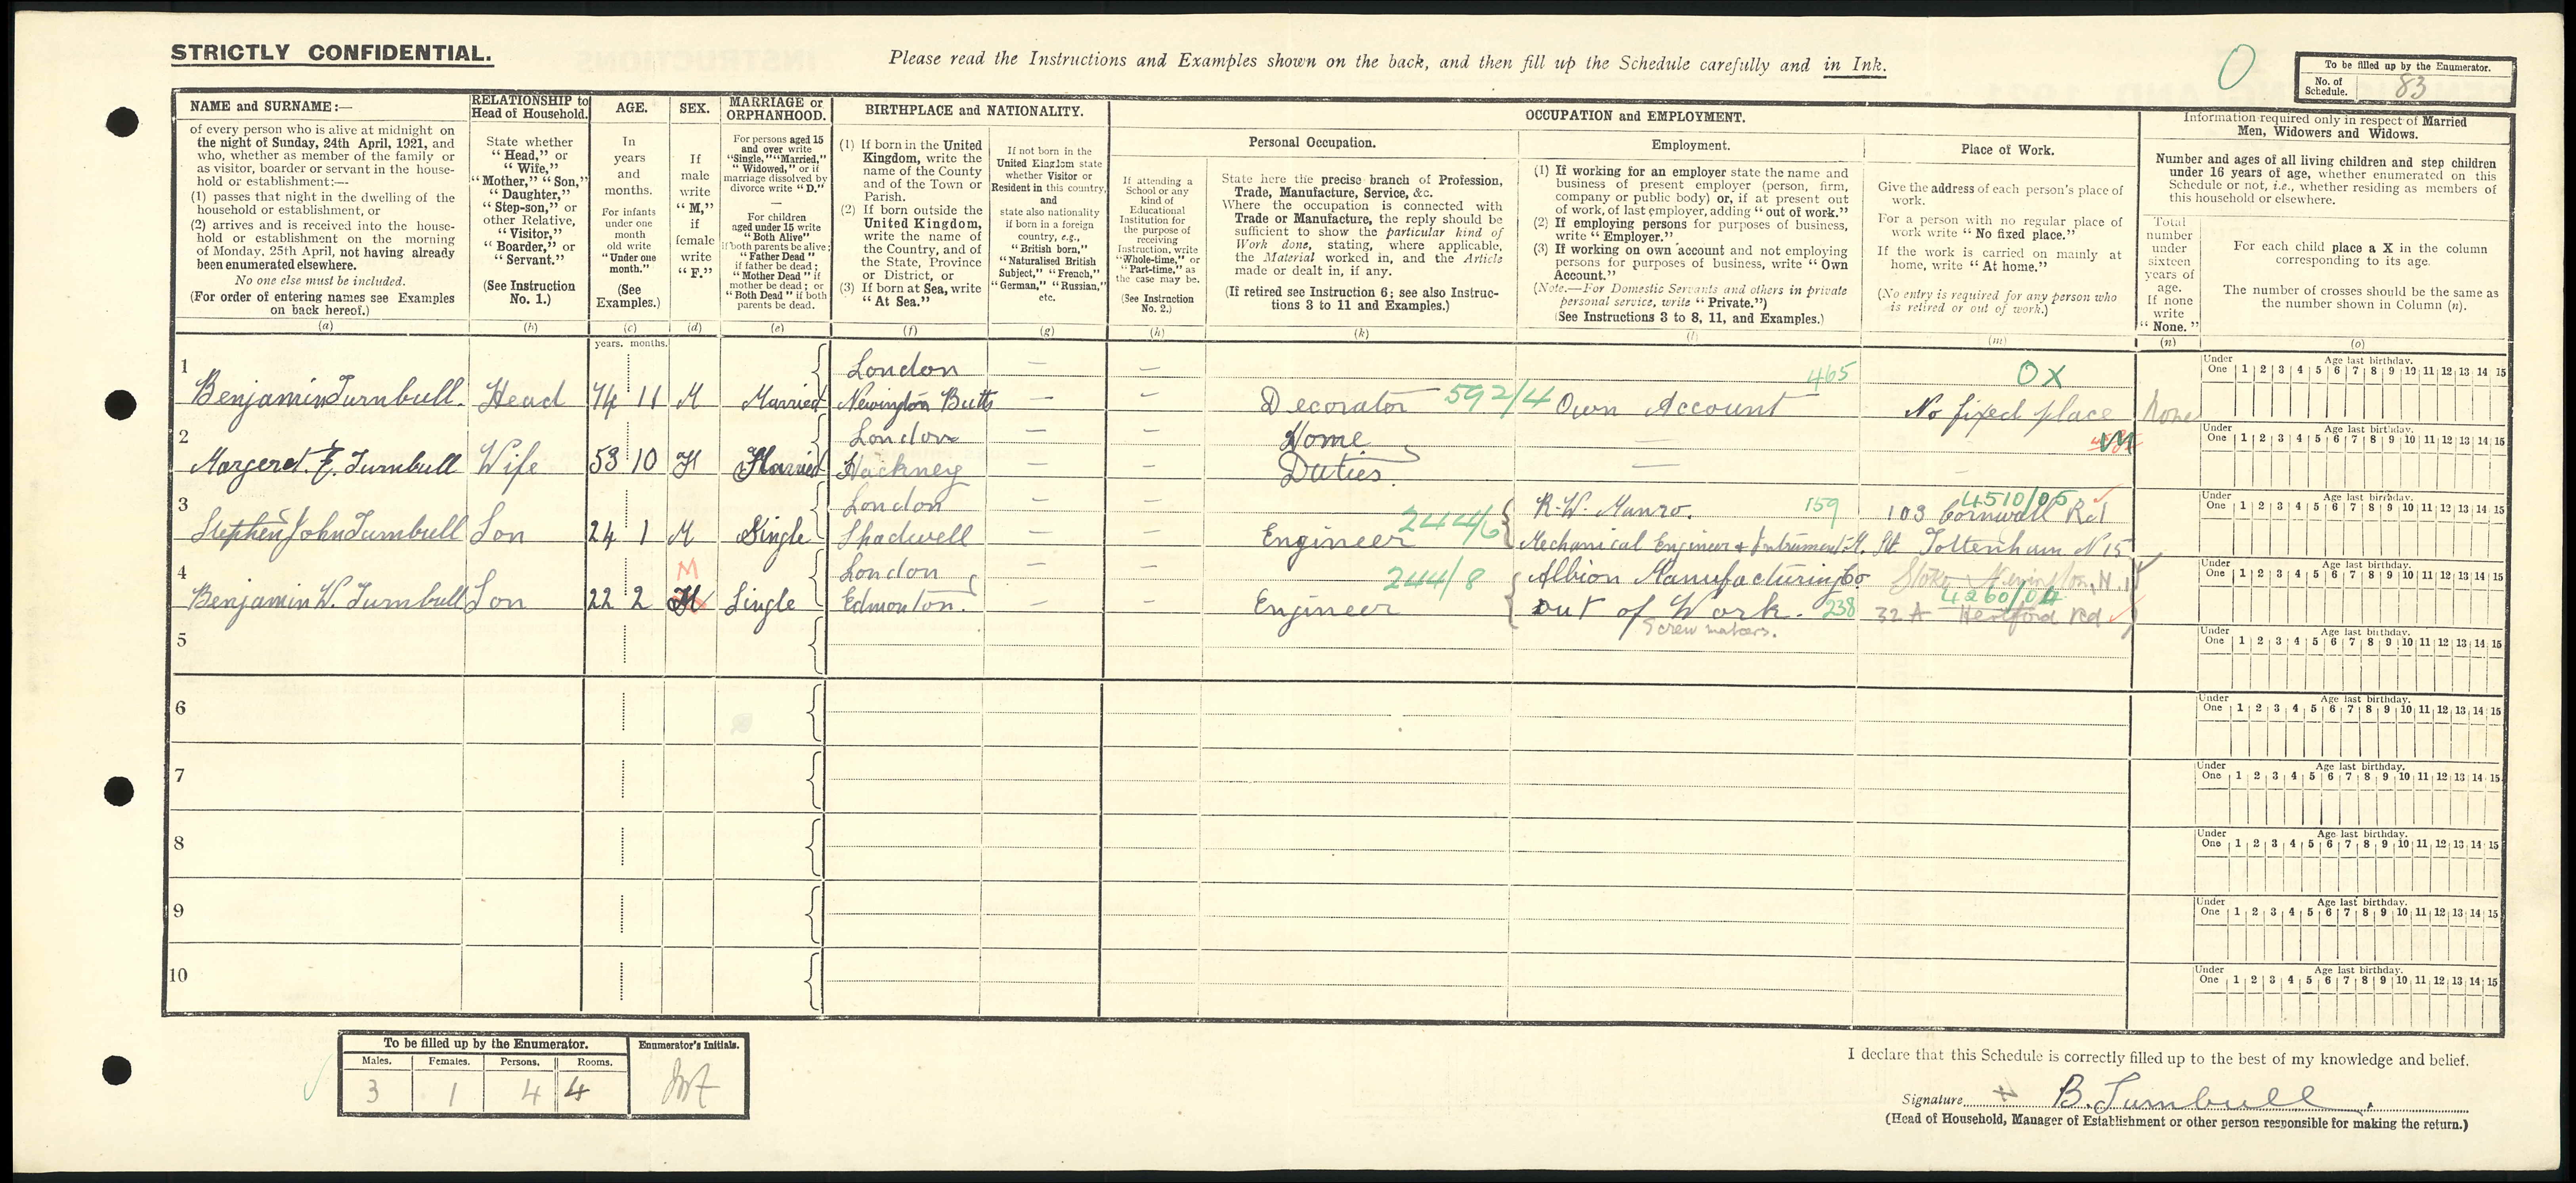 STRICTLY CONFIDENTIAL.
Please read the Instructions and Examples shown on the back, and then fill up the Schedule carefully and in Ink.
O
To be filled up by the Enumerator.
No. of Schedule. 83
NAME and SURNAME:—
of every person who is alive at midnight on
the night of Sunday, 24th April, 1921, and
who, whether as member of the family or
as visitor, boarder or servant in the house-
hold or establishment:—
(1) passes that night in the dwelling of the
household or establishment, or
(2) arrives and is received into the house-
hold or establishment on the morning
of Monday, 25th April, not having already
been enumerated elsewhere.
No one else must be included.
(For order of entering names see Examples
on back hereof.)
(a)
RELATIONSHIP to
Head of Household.
State whether
"Head," or
"Wife,"
"Mother," "Son,"
"Daughter,"
"Step-son," or
other Relative,
"Visitor,"
"Boarder," or
"Servant."
(See Instruction
No. 1.)
(b)
AGE.
In
years
and
months.
For infants
under one
month
old write
"Under one
month."
(See
Examples.)
(c)
SEX.
If
male
write
"M,"
if
female
write
"F."
(d)
MARRIAGE or
ORPHANHOOD.
For persons aged 15
and over write
"Single," "Married,"
"Widowed," or if
marriage dissolved by
divorce write "D."
—
For children
aged under 15 write
"Both Alive"
if both parents be alive;
"Father Dead"
if father be dead;
"Mother Dead" if
mother be dead; or
"Both Dead" if both
parents be dead.
(e)
BIRTHPLACE and NATIONALITY.
(1) If born in the United
Kingdom, write the
name of the County
and of the Town or
Parish.
(2) If born outside the
United Kingdom,
write the name of
the Country, and of
the State, Province
or District, or
(3) If born at Sea, write
"At Sea."
(f)
If not born in the
United Kingdom state
whether Visitor or
Resident in this country,
and
state also nationality
if born in a foreign
country, e.g.,
"British born,"
"Naturalised British
Subject," "French,"
"German," "Russian,"
etc.
(g)
OCCUPATION and EMPLOYMENT.
If attending a
School or any
kind of
Educational
Institution for
the purpose of
receiving
Instruction, write
"Whole-time," or
"Part-time," as
the case may be.
(See Instruction
No. 2.)
(h)
Personal Occupation.
State here the precise branch of Profession,
Trade, Manufacture, Service, &c.
Where the occupation is connected with
Trade or Manufacture, the reply should be
sufficient to show the particular kind of
Work done, stating, where applicable,
the Material worked in, and the Article
made or dealt in, if any.
(If retired see Instruction 6; see also Instruc-
tions 3 to 11 and Examples.)
(k)
Employment.
(1) If working for an employer state the name and
business of present employer (person, firm,
company or public body) or, if at present out
of work, of last employer, adding "out of work."
(2) If employing persons for purposes of business,
write "Employer."
(3) If working on own account and not employing
persons for purposes of business, write "Own
Account."
(Note.—For Domestic Servants and others in private
personal service, write "Private.")
(See Instructions 3 to 8, 11, and Examples.)
(l)
Place of Work.
Give the address of each person's place of
work.
For a person with no regular place of
work write "No fixed place."
If the work is carried on mainly at
home, write "At home."
(No entry is required for any person who
is retired or out of work.)
(m)
Information required only in respect of Married
Men, Widowers and Widows.
Number and ages of all living children and step children
under 16 years of age, whether enumerated on this
Schedule or not, i.e., whether residing as members of
this household or elsewhere.
Total
number
under
sixteen
years of
age.
If none
write
"None."
(n)
For each child place a X in the column
corresponding to its age.
The number of crosses should be the same as
the number shown in Column (n).
(o)
years. months.
1 Benjamin Turnbull. Head 74 11 M Married London Newington Butts — — Decorator 592/4 Own Account 465 No fixed place OX None
Under One Age last birthday. 1 2 3 4 5 6 7 8 9 10 11 12 13 14 15
2 Margeret. E. Turnbull Wife 53 10 F Married London Hackney — — Home Duties. —
Under One Age last birthday. 1 2 3 4 5 6 7 8 9 10 11 12 13 14 15
3 Stephen John Turnbull Son 24 1 M Single London Shadwell — — Engineer 244/6 R. W. Munro. 159 Mechanical Engineer & Intrument M. 4510/05 103 Cornwall Rd St Tottenham N 15
Under One Age last birthday. 1 2 3 4 5 6 7 8 9 10 11 12 13 14 15
4 Benjamin W. Turnbull Son 22 2 M Single London Edmonton. — — Engineer 244/8 Albion Manufacturing Co out of Work. 238 Screw makers. Stoke Newington, N. 4260/04 32 A Hertford Rd
Under One Age last birthday. 1 2 3 4 5 6 7 8 9 10 11 12 13 14 15
5
Under One Age last birthday. 1 2 3 4 5 6 7 8 9 10 11 12 13 14 15
6
Under One Age last birthday. 1 2 3 4 5 6 7 8 9 10 11 12 13 14 15
7
Under One Age last birthday. 1 2 3 4 5 6 7 8 9 10 11 12 13 14 15
8
Under One Age last birthday. 1 2 3 4 5 6 7 8 9 10 11 12 13 14 15
9
Under One Age last birthday. 1 2 3 4 5 6 7 8 9 10 11 12 13 14 15
10
Under One Age last birthday. 1 2 3 4 5 6 7 8 9 10 11 12 13 14 15
To be filled up by the Enumerator. Enumerator's Initials.
Males. Females. Persons. Rooms.
3 1 4 4
I declare that this Schedule is correctly filled up to the best of my knowledge and belief.
Signature B. Turnbull.
(Head of Household, Manager of Establishment or other person responsible for making the return.)